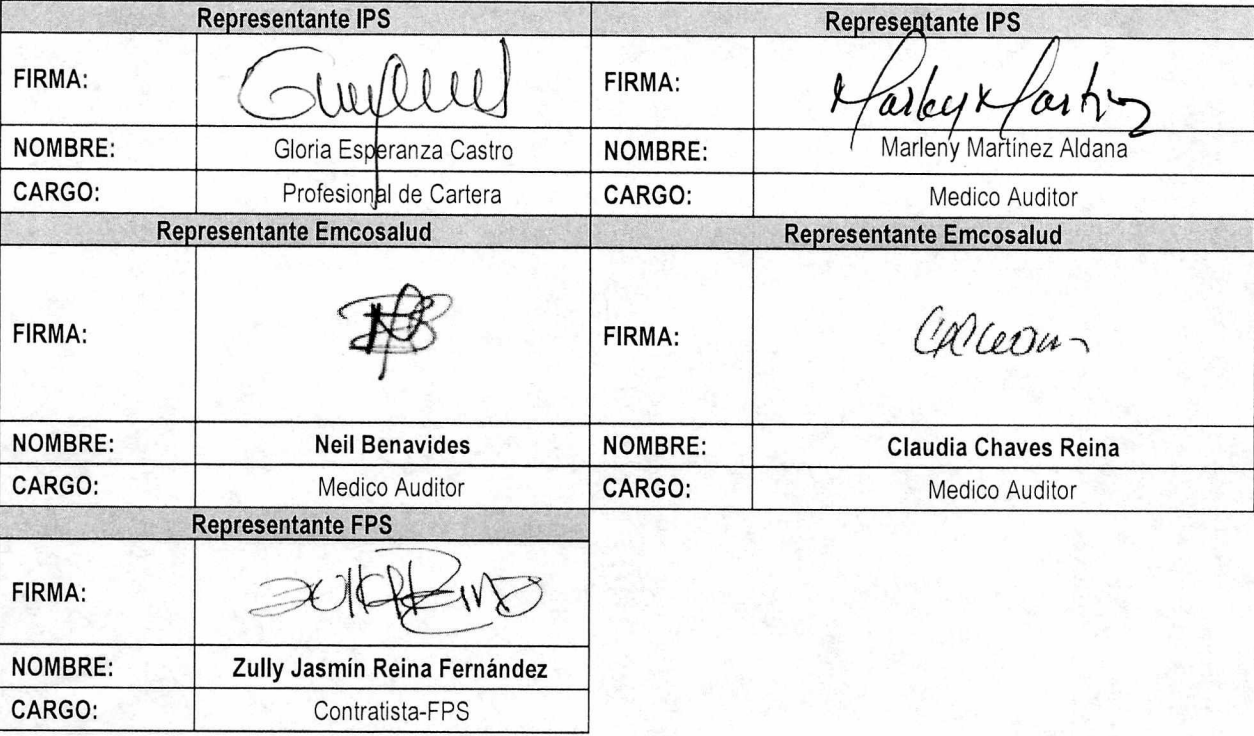 Representante IPS
Representante IPS
FIRMA:
FIRMA:
Marleny Martinez
NOMBRE: Gloria Esperanza Castro
NOMBRE: Marleny Martinez Aldana
CARGO: Profesional de Cartera
CARGO: Medico Auditor
Representante Emcosalud
Representante Emcosalud
FIRMA:
FIRMA:
NOMBRE: Neil Benavides
NOMBRE: Claudia Chaves Reina
CARGO: Medico Auditor
CARGO: Medico Auditor
Representante FPS
FIRMA:
NOMBRE: Zully Jasmín Reina Fernández
CARGO: Contratista-FPS